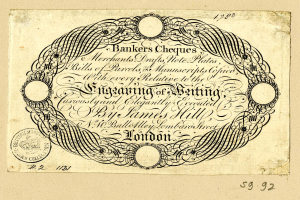 1780
Bankers Cheques
Merchants Drafts, Note Plates
Bills of Parcels, & Manuscripts Copied
With every Relative to the
Engraving of Writing
Curiously and Elegantly Executed
By James Hill
Ball Alley Lombard Street
London
59 92